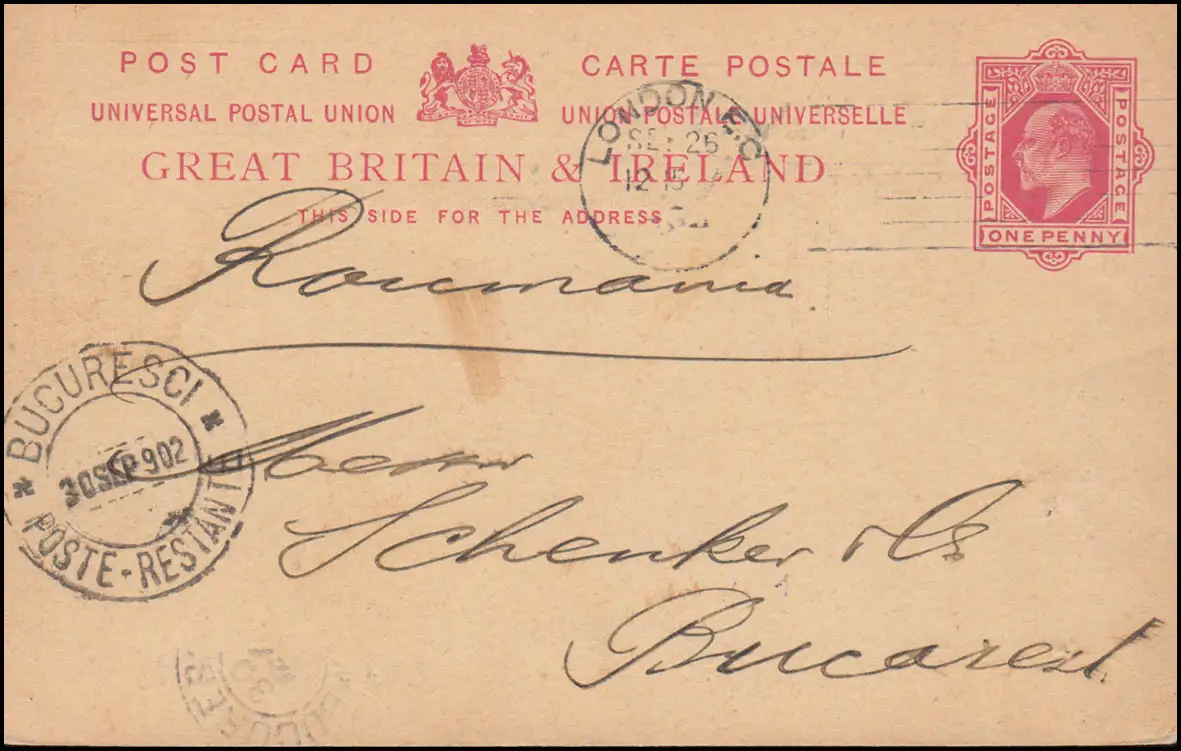 POST CARD CARTE POSTALE
UNIVERSAL POSTAL UNION UNION POSTALE UNIVERSELLE
GREAT BRITAIN & IRELAND
THIS SIDE FOR THE ADDRESS
POSTAGE POSTAGE
ONE PENNY
LONDON E.C
SEP 26
12 15
Roumania
BUCURESCI
30 SEP 902
POSTE-RESTANTE
Herrn
Schenker & Co
Bucarest